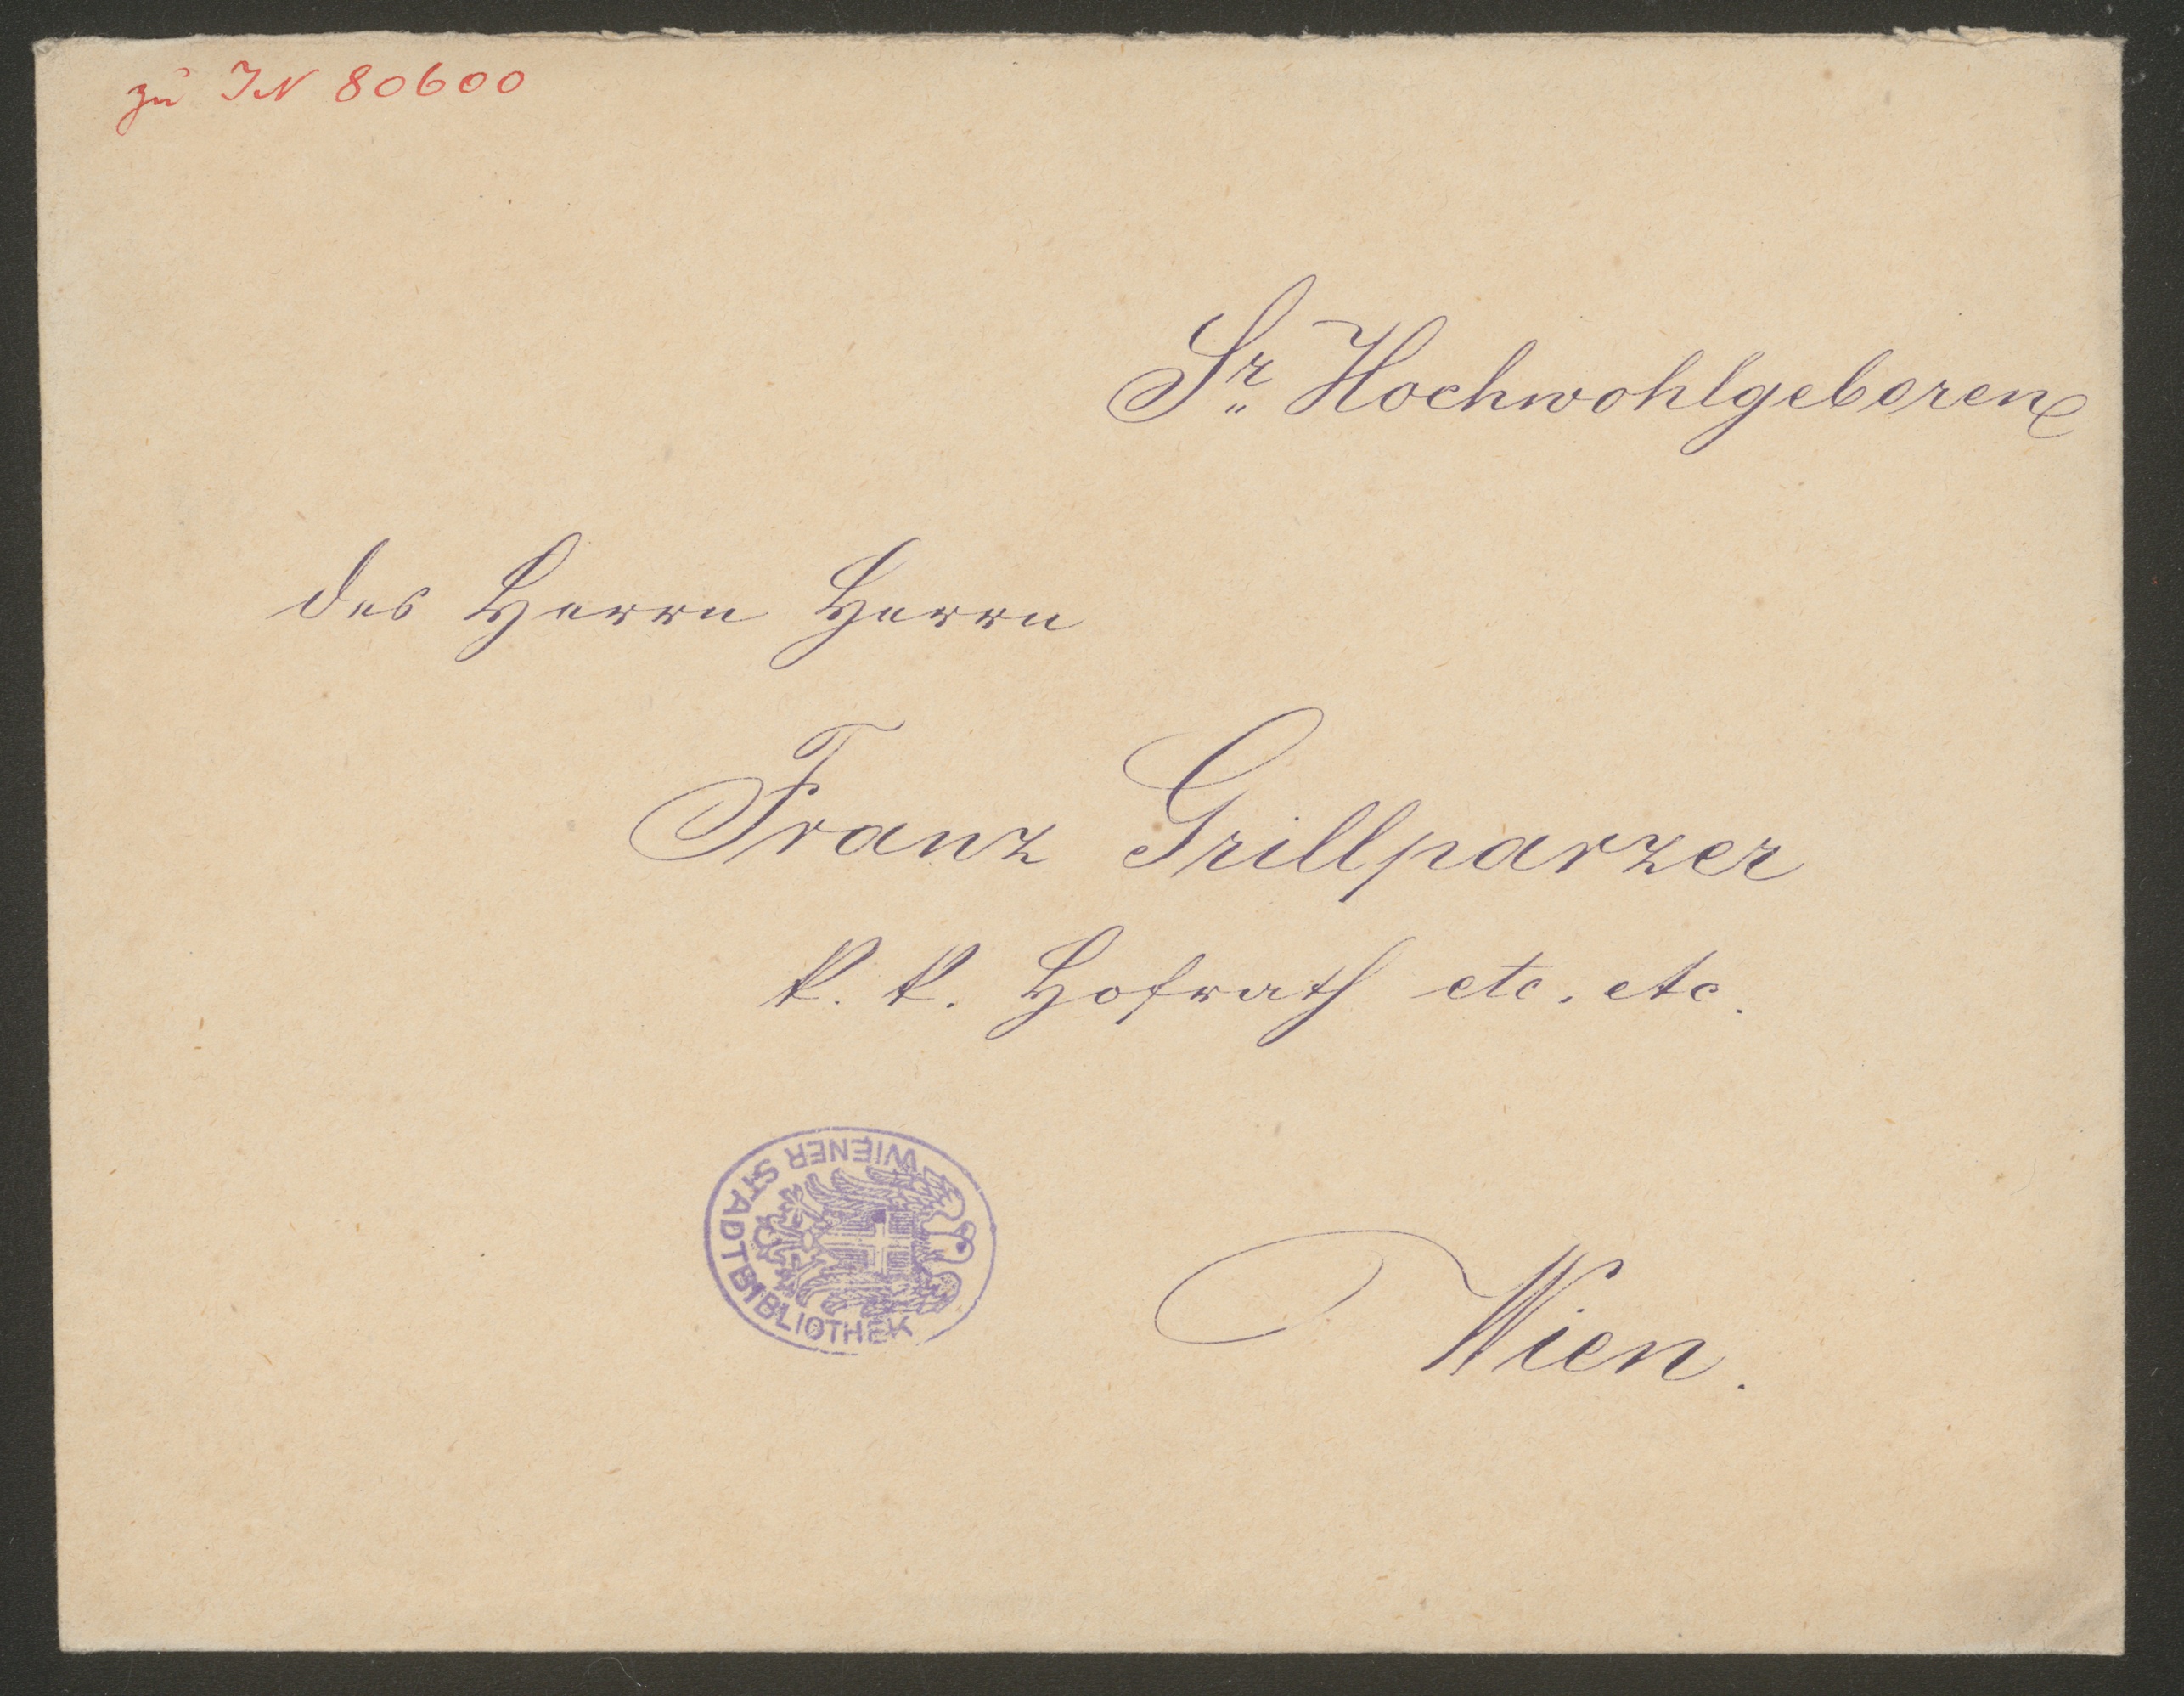 zu IN 80600
Sr. Hochwohlgeboren
des Herrn Herrn
Franz Grillparzer
k. k. Hofrath etc. etc.
WIENER STADTBIBLIOTHEK
Wien.